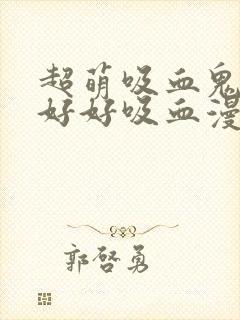 超萌吸血鬼
好好吸血漫
郭啓勇